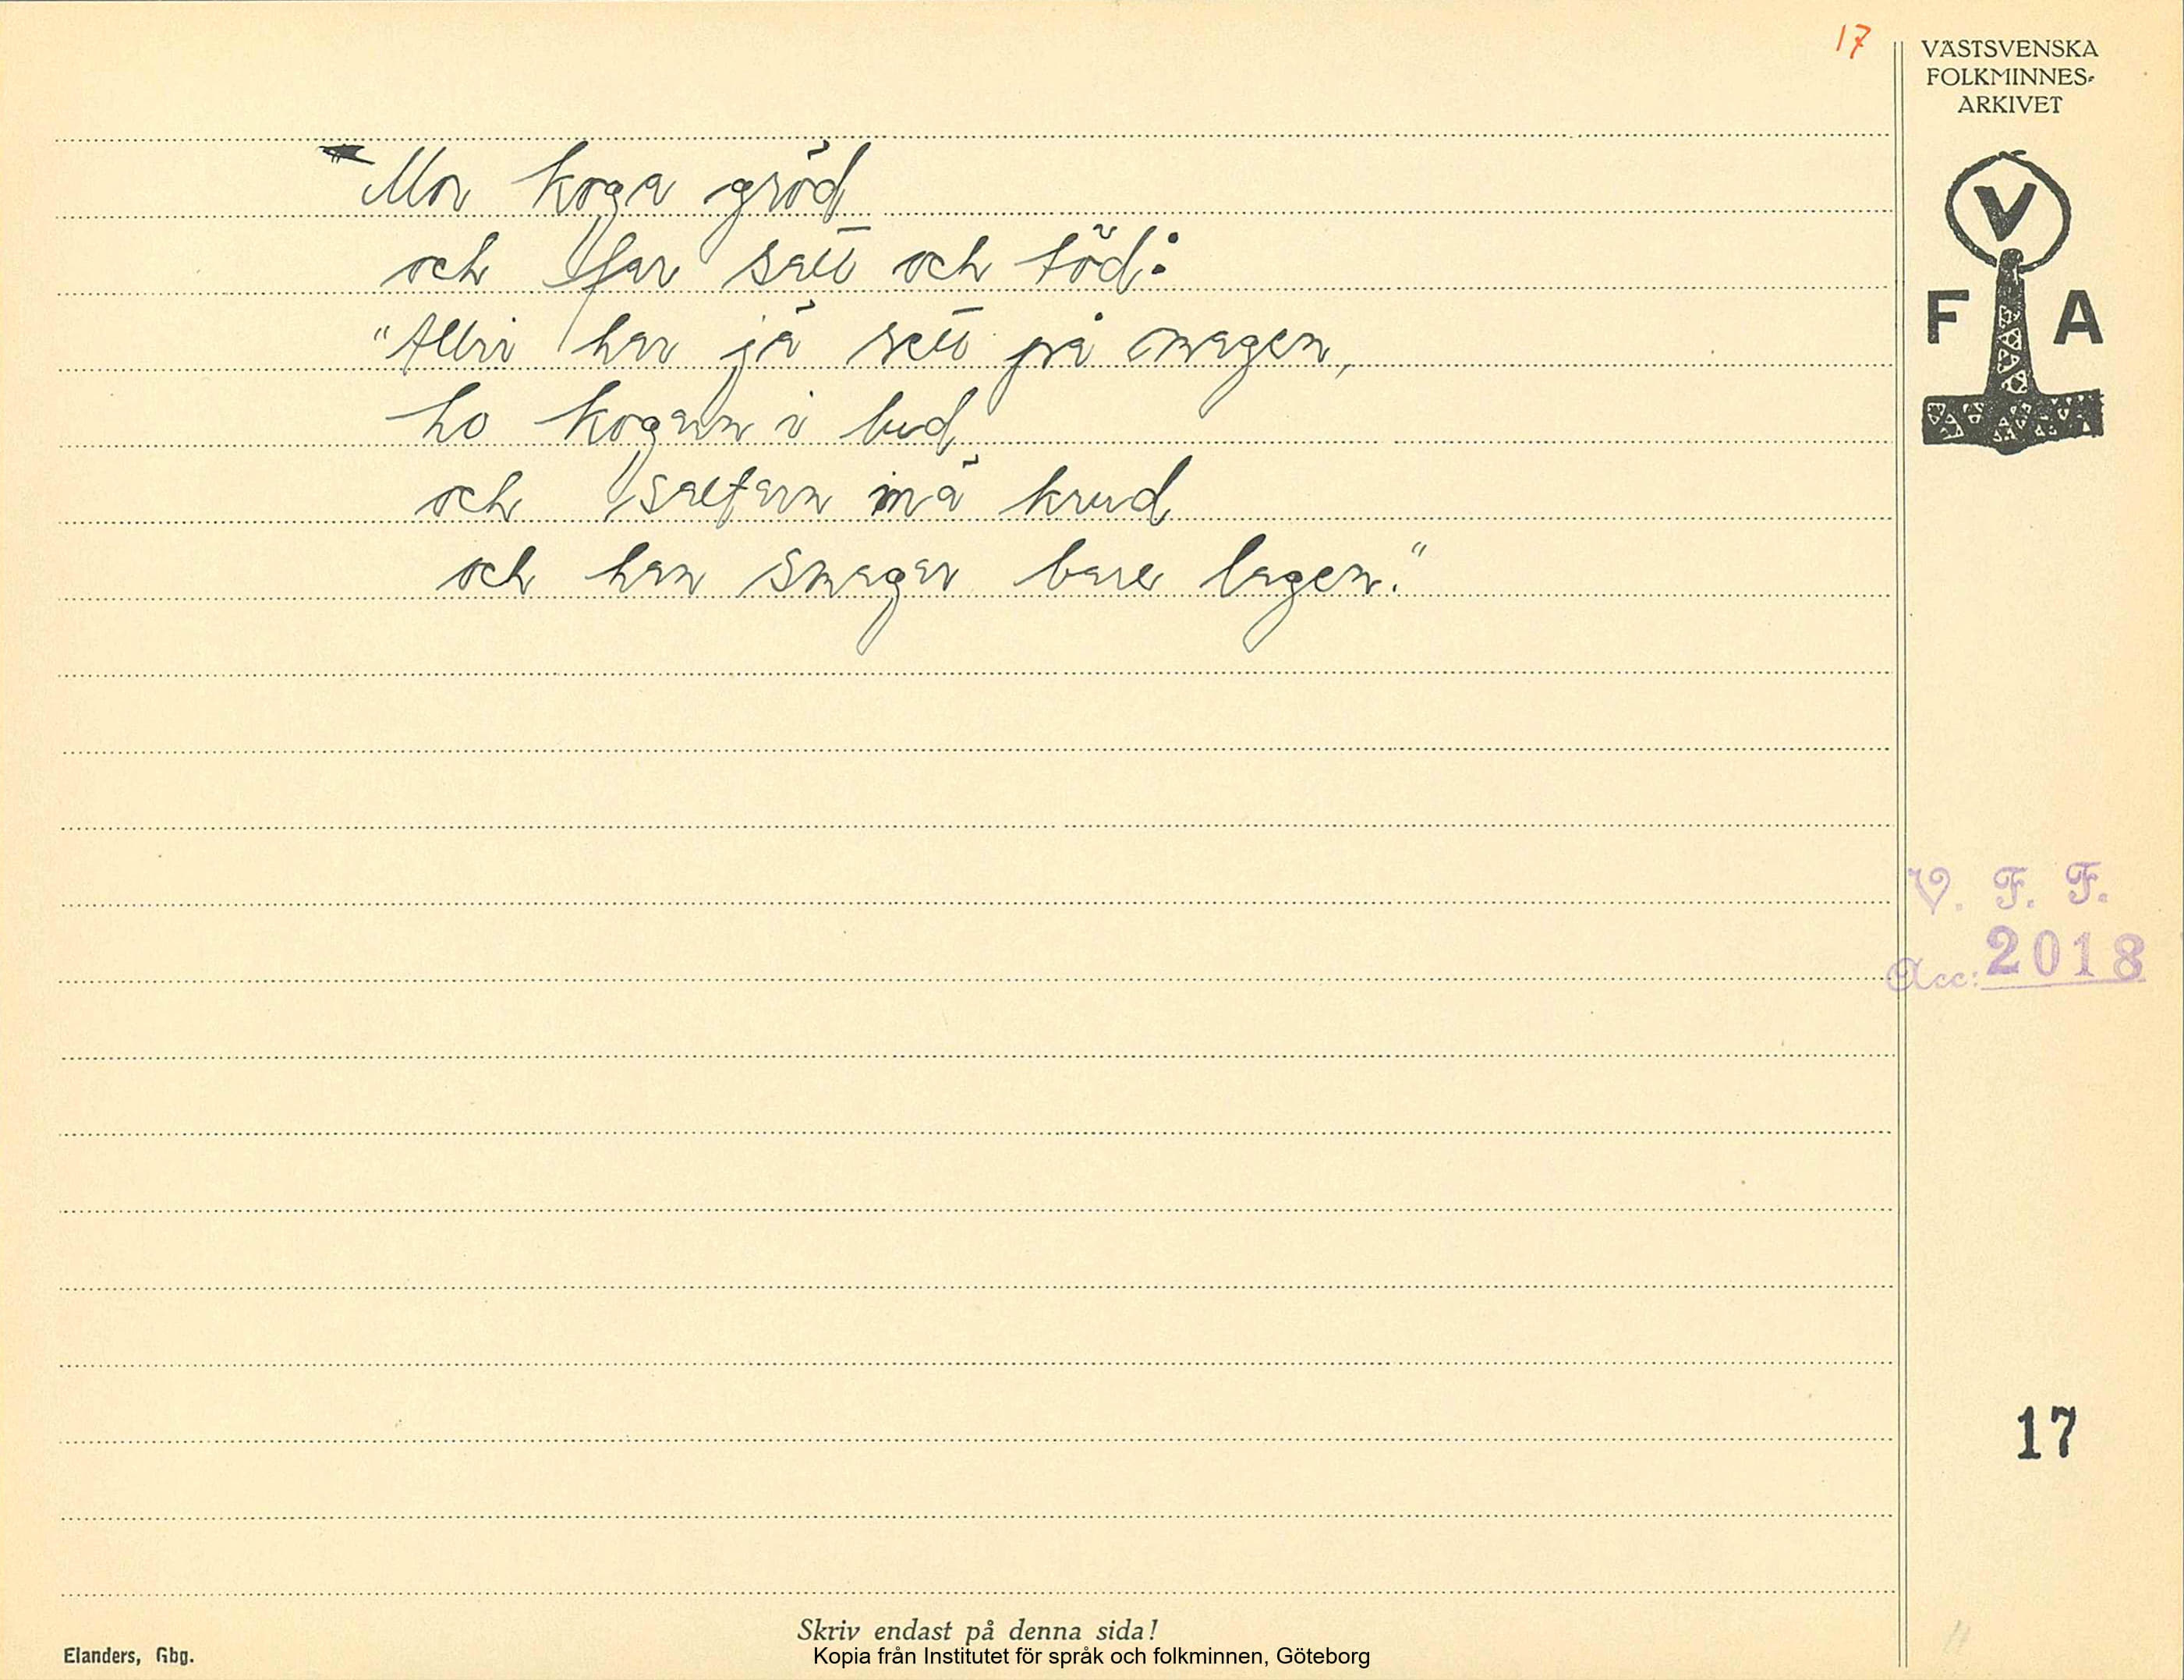 17
VÄSTSVENSKA
FOLKMINNES-
ARKIVET
V
F A
Mor koga gröd
och far satt och töd:
"Allri har jä sett på magen,
ho kogarn i lud
och saltarn mä krud
och han smagar bare lagen."
V. F. F.
Acc: 2018
17
Skriv endast på denna sida!
Elanders, Gbg.
Kopia från Institutet för språk och folkminnen, Göteborg